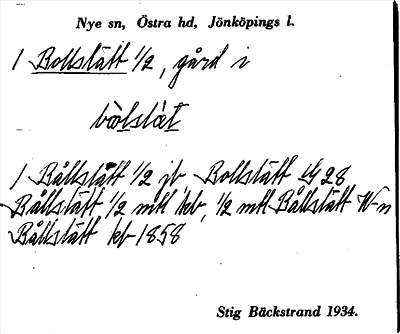 Nye sn, Östra hd, Jönköpings l.
1 Bollstätt 1/2, gård i
bòlstàt
1 Bållstätt 1/2 jb Bollstätt 28
Bållstätt 1/2 mtl kb, 1/2 mtl Bållstätt N-n
Bållstätt kb 1858
Stig Bäckstrand 1934.